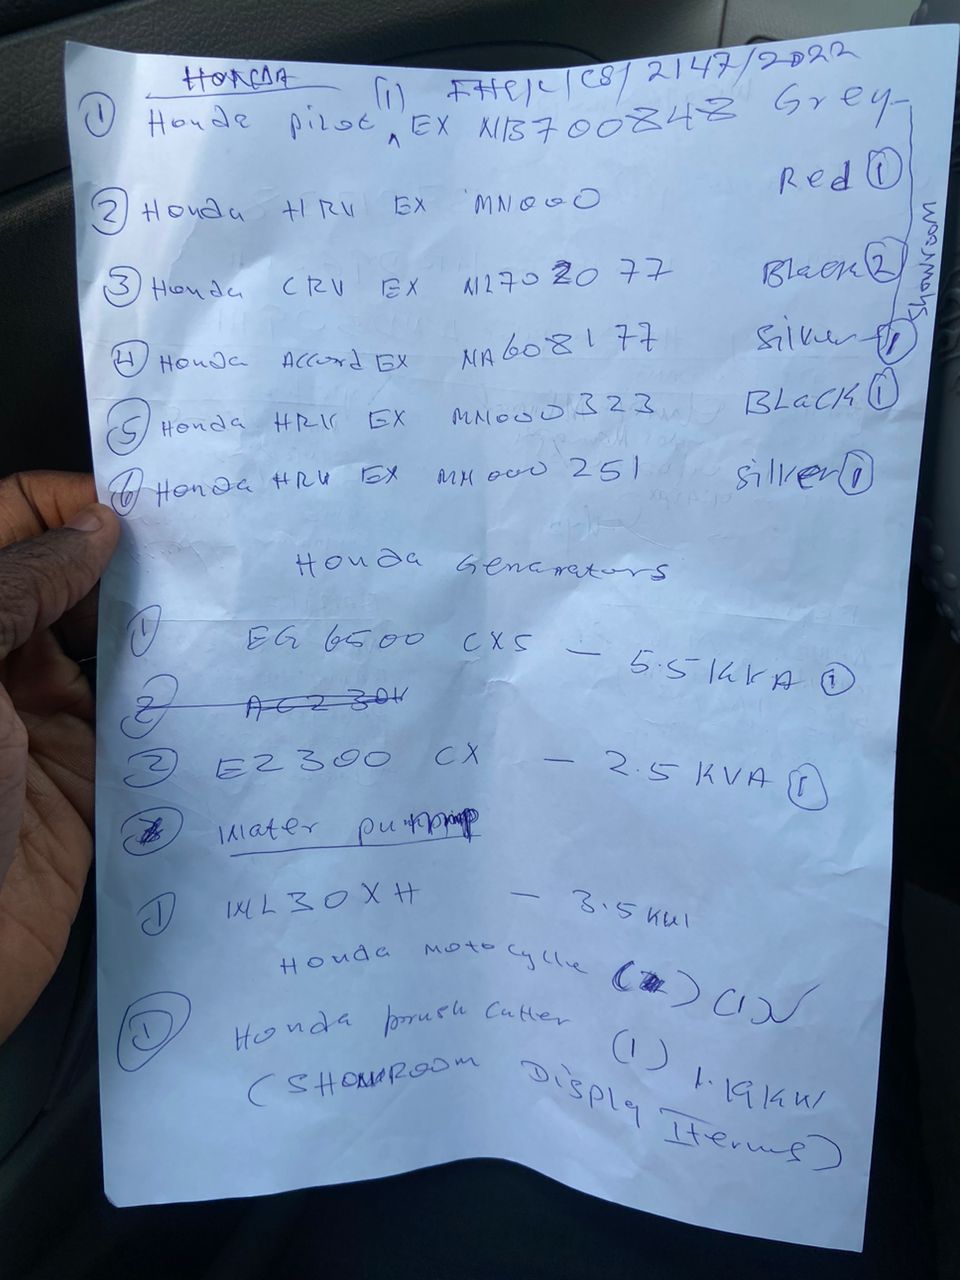 HONDA
FHC/L/CS/2147/2022
① Honda pilot (1) EX NB700848 Grey
② Honda HRV EX MN000 Red ①
③ Honda CRV EX N1702077 Black ②
④ Honda Accord EX NA608177 Silver ①
⑤ Honda HRV EX MN000323 BLACK ①
⑥ Honda HRV EX MN000251 Silver ①
Showroom
Honda Generators
① EG 6500 CXS — 5.5 KVA ①
② EZ300 CX — 2.5 KVA ①
Water pump
① WL30XH — 3.5 KW
Honda motocyclle (1)
① Honda brush Cutter (1) 1.19KW
(SHOWROOM Display Iterms)